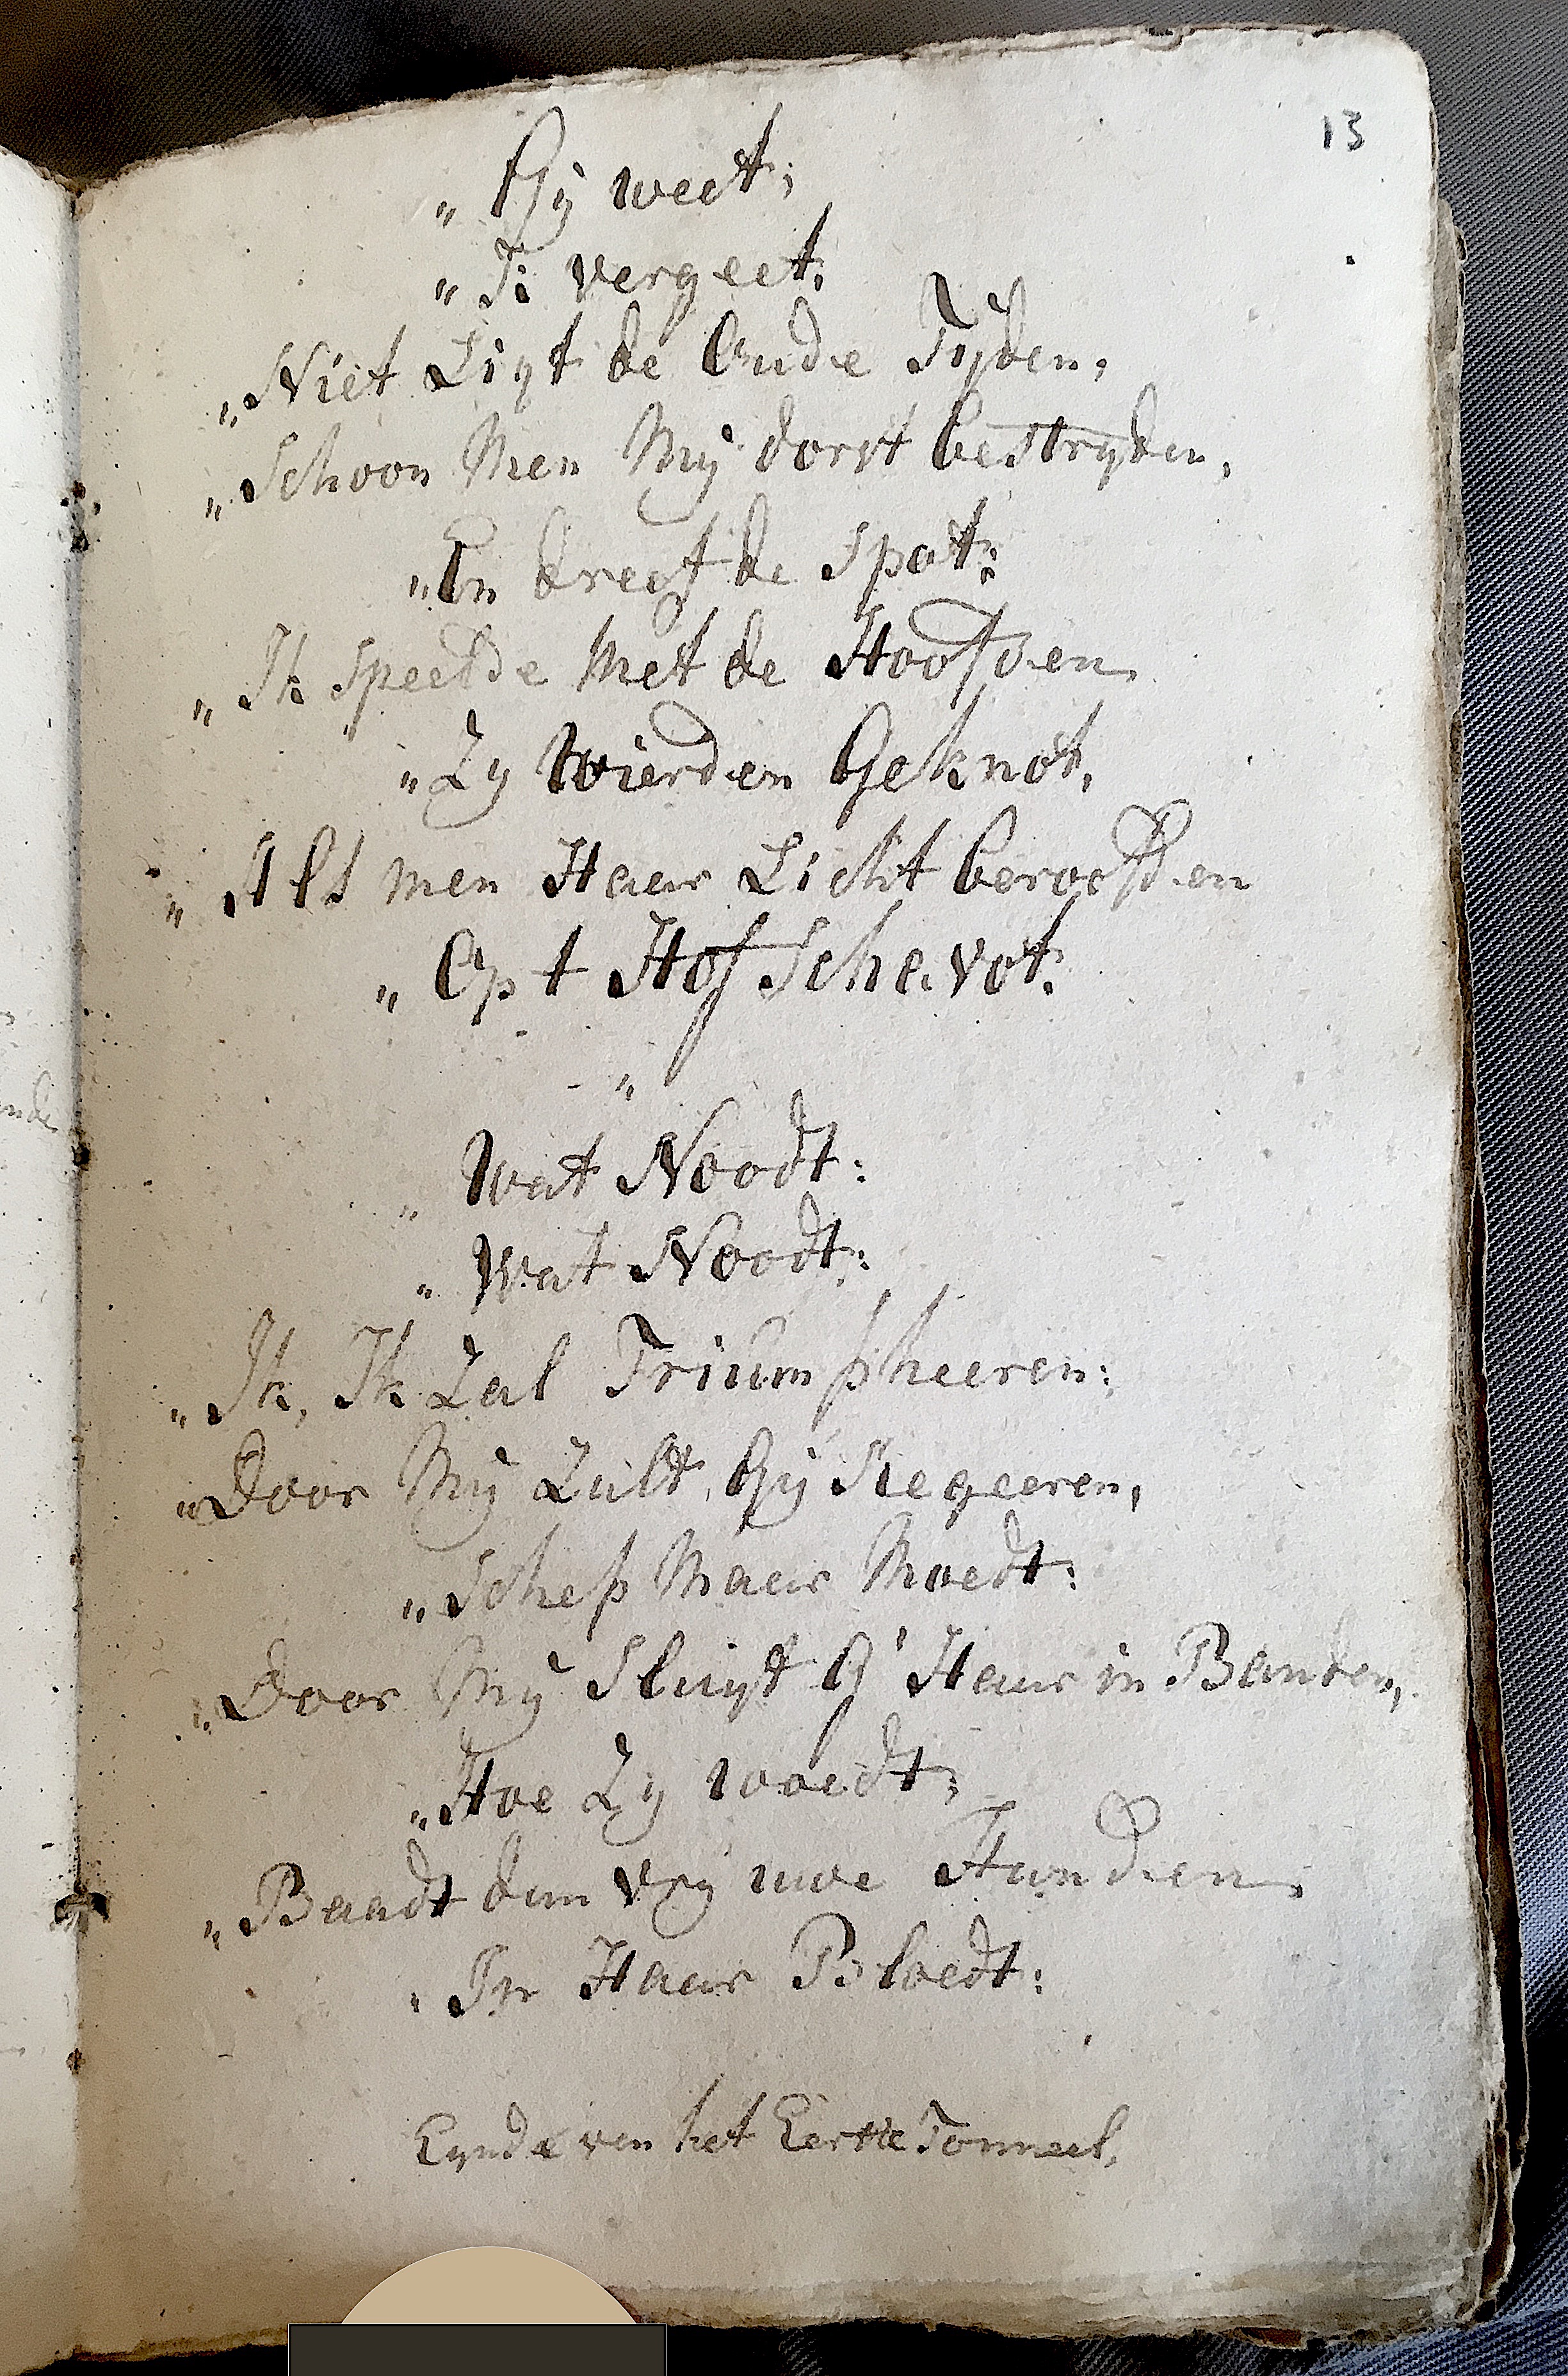 13
„ Gÿ weet;
„ Ik vergeet;
„ Niet Ligt de Oude Tÿden,
„ Schoon Men Mÿ dorst bestryden,
„ En dreef de Spot:
„ Ik Speelde Met de Hoofden
„ Zy Wierden Geknot,
„ Als men Haar Licht beroofden
„ Op t Hof Schavot:
„
„ Wat Noodt:
„ Wat Noodt:
„ Ik, Ik Zal Triumpheeren:
„ Door Mÿ Zult Gÿ Regeeren,
„ Schep Maar Moedt:
„ Door Mÿ Sluyt G' Haar in Banden,
„ Hoe Zy woedt;
„ Baadt dan vry uwe Handen
„ In Haar Bloedt:
Eynde van het Eerste Tonneel,